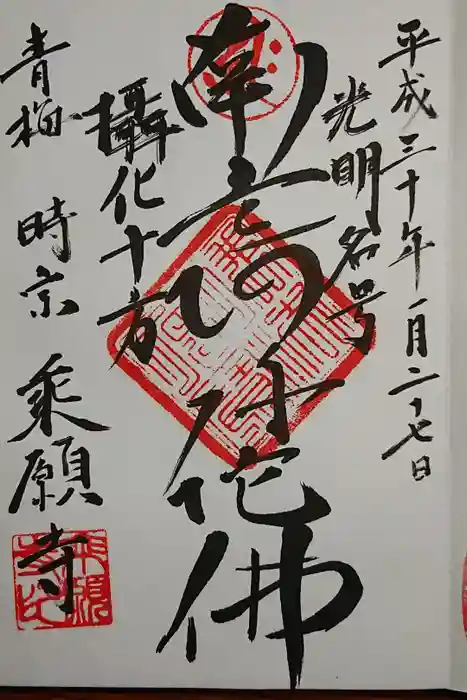 平成三十年一月二十七日
光明名号
南無阿弥陀佛
攝化十方
青梅 時宗 乗願寺